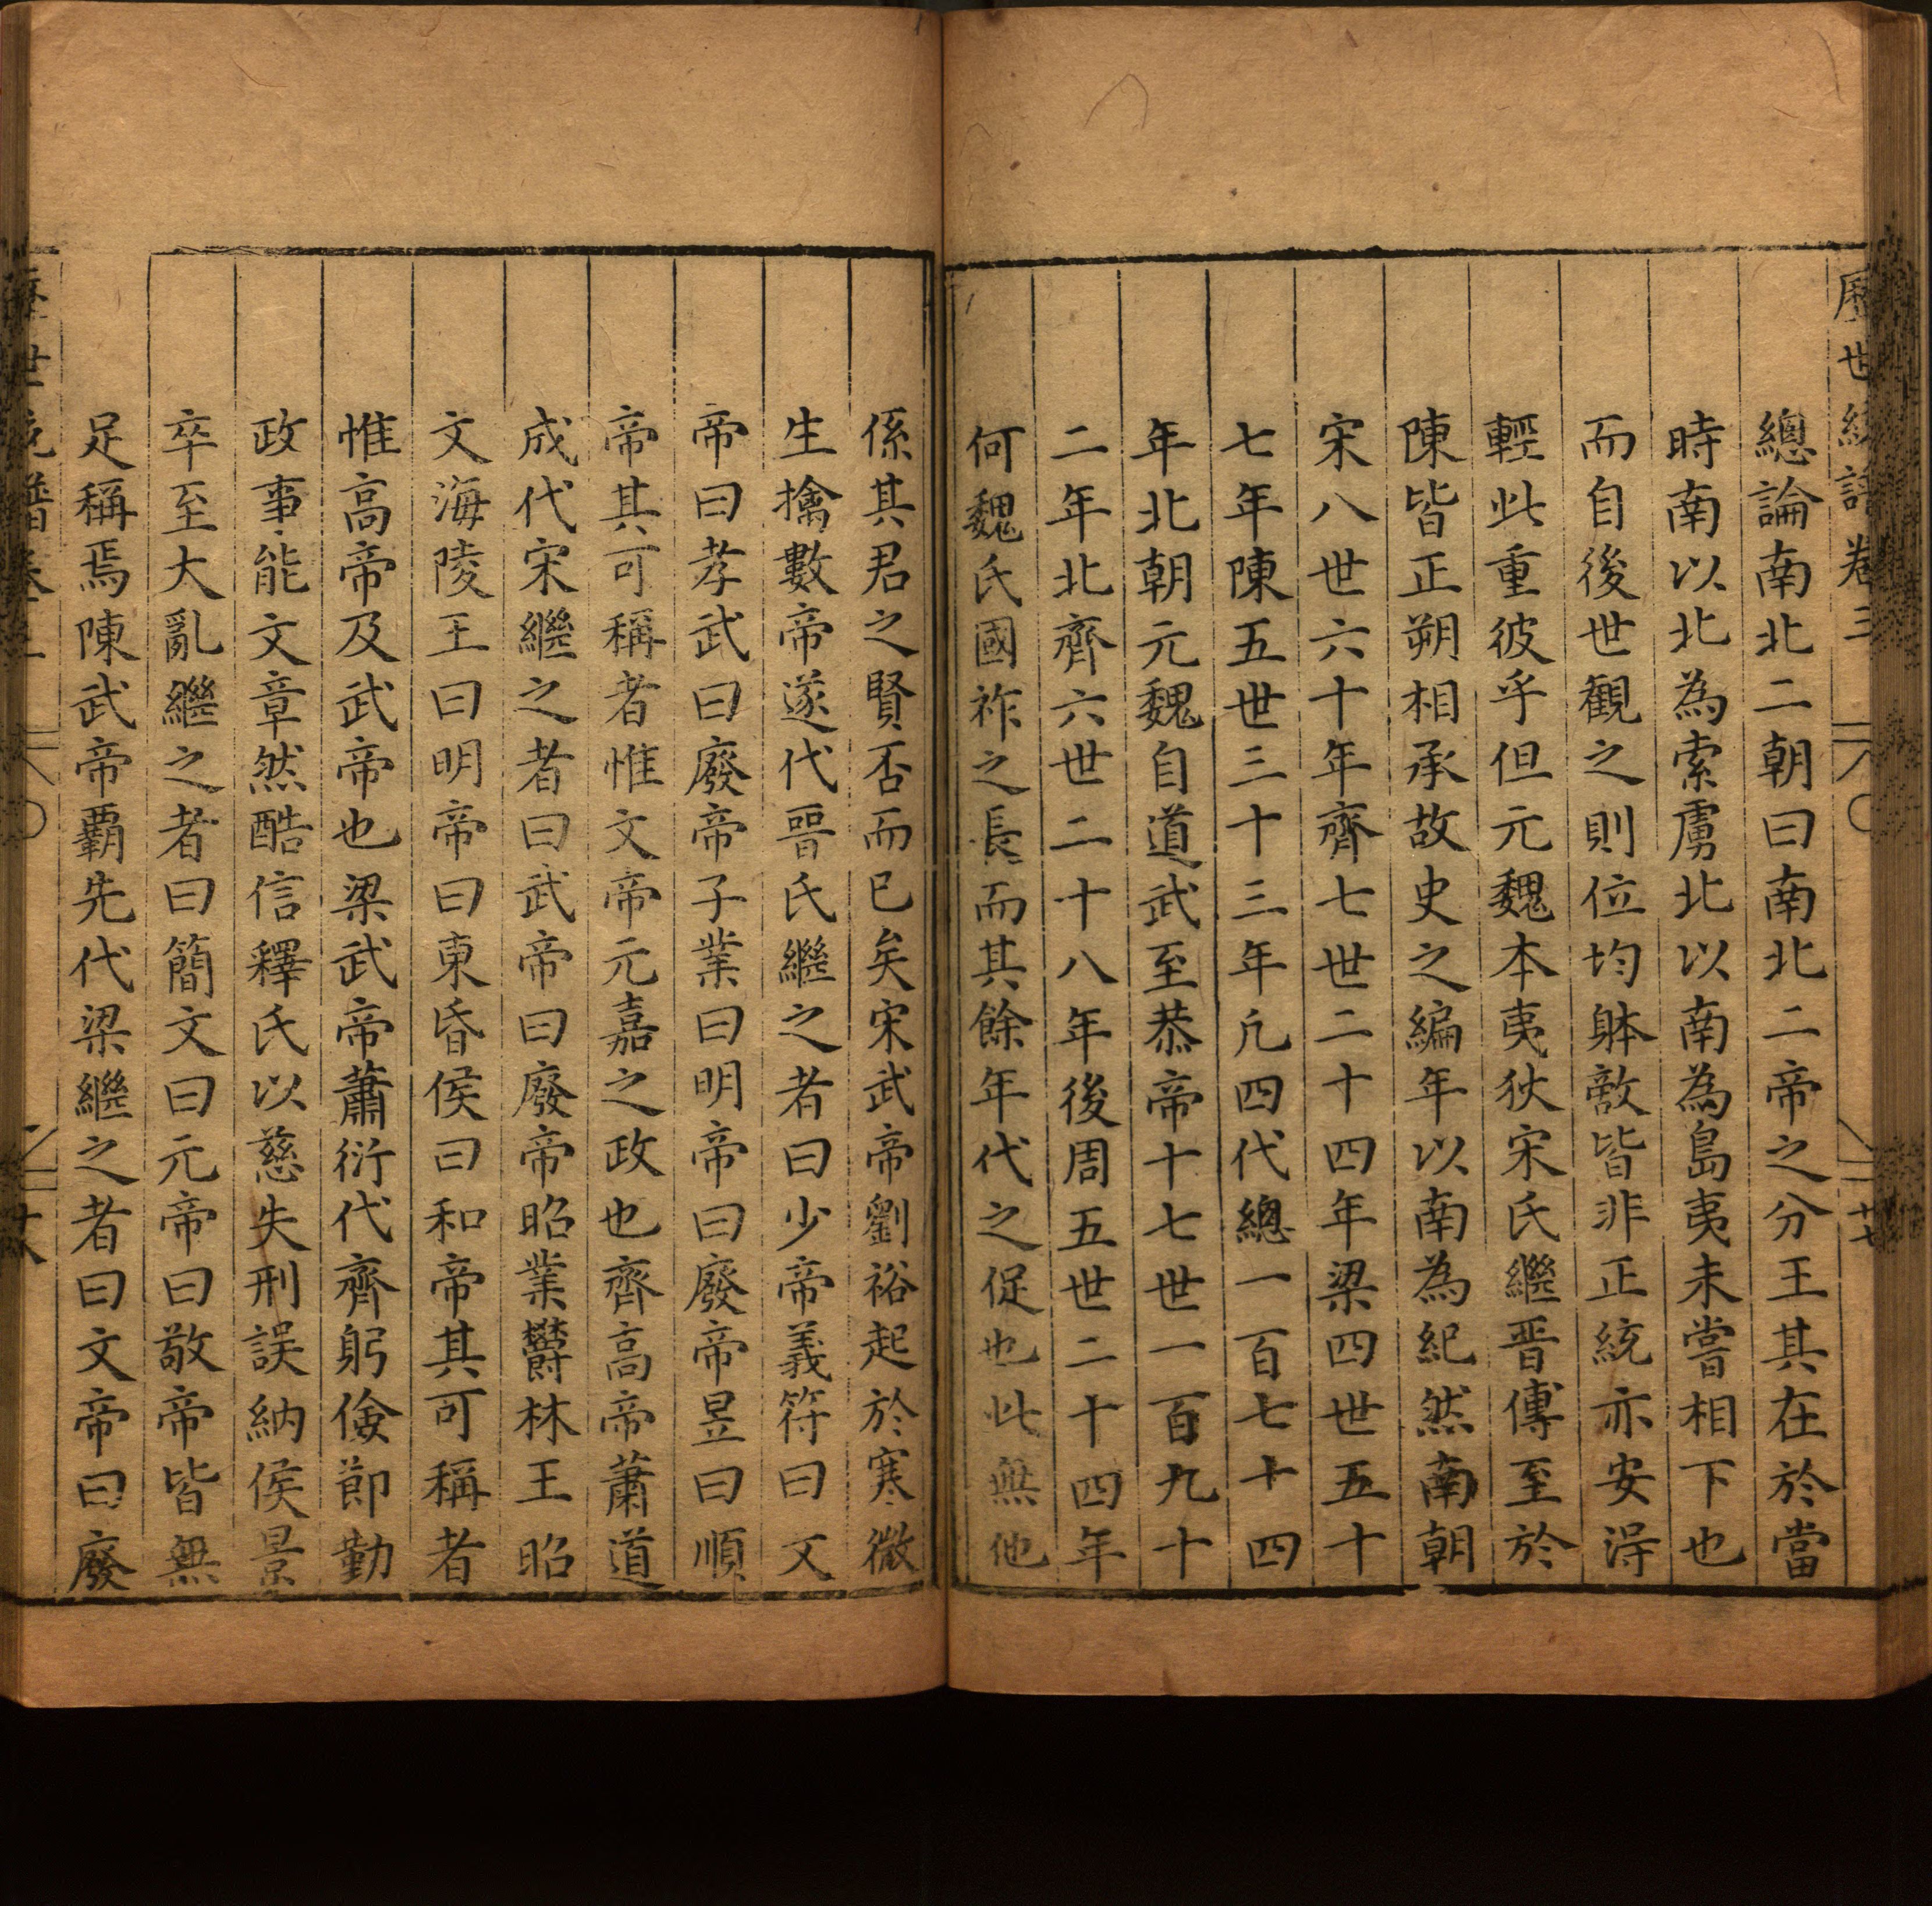 歷世統譜卷三
廿七
總論南北二朝曰南北二帝之分王其在於當
時南以北為索虜北以南為島夷未嘗相下也
而自後世觀之則位均躰敵皆非正統亦安淂
輕此重彼乎但元魏本夷狄宋氏繼晋傳至於
陳皆正朔相承故史之編年以南為紀然南朝
宋八世六十年齊七世二十四年梁四世五十
七年陳五世三十三年凢四代總一百七十四
年北朝元魏自道武至恭帝十七世一百九十
二年北齊六世二十八年後周五世二十四年
何魏氏國祚之長而其餘年代之促也此無他
係其君之賢否而已矣宋武帝劉裕起於寒微
生擒數帝遂代晉氏繼之者曰少帝義符曰文
帝曰孝武曰廢帝子業曰明帝曰廢帝昱曰順
帝其可稱者惟文帝元嘉之政也齊高帝蕭道
成代宋繼之者曰武帝曰廢帝昭業欝林王昭
文海陵王曰明帝曰東昏侯曰和帝其可稱者
惟高帝及武帝也梁武帝蕭衍代齊躬儉節勤
政事能文章然酷信釋氏以慈失刑誤納侯景
卒至大亂繼之者曰簡文曰元帝曰敬帝皆無
足稱焉陳武帝霸先代梁繼之者曰文帝曰廢
世統譜卷
廿八